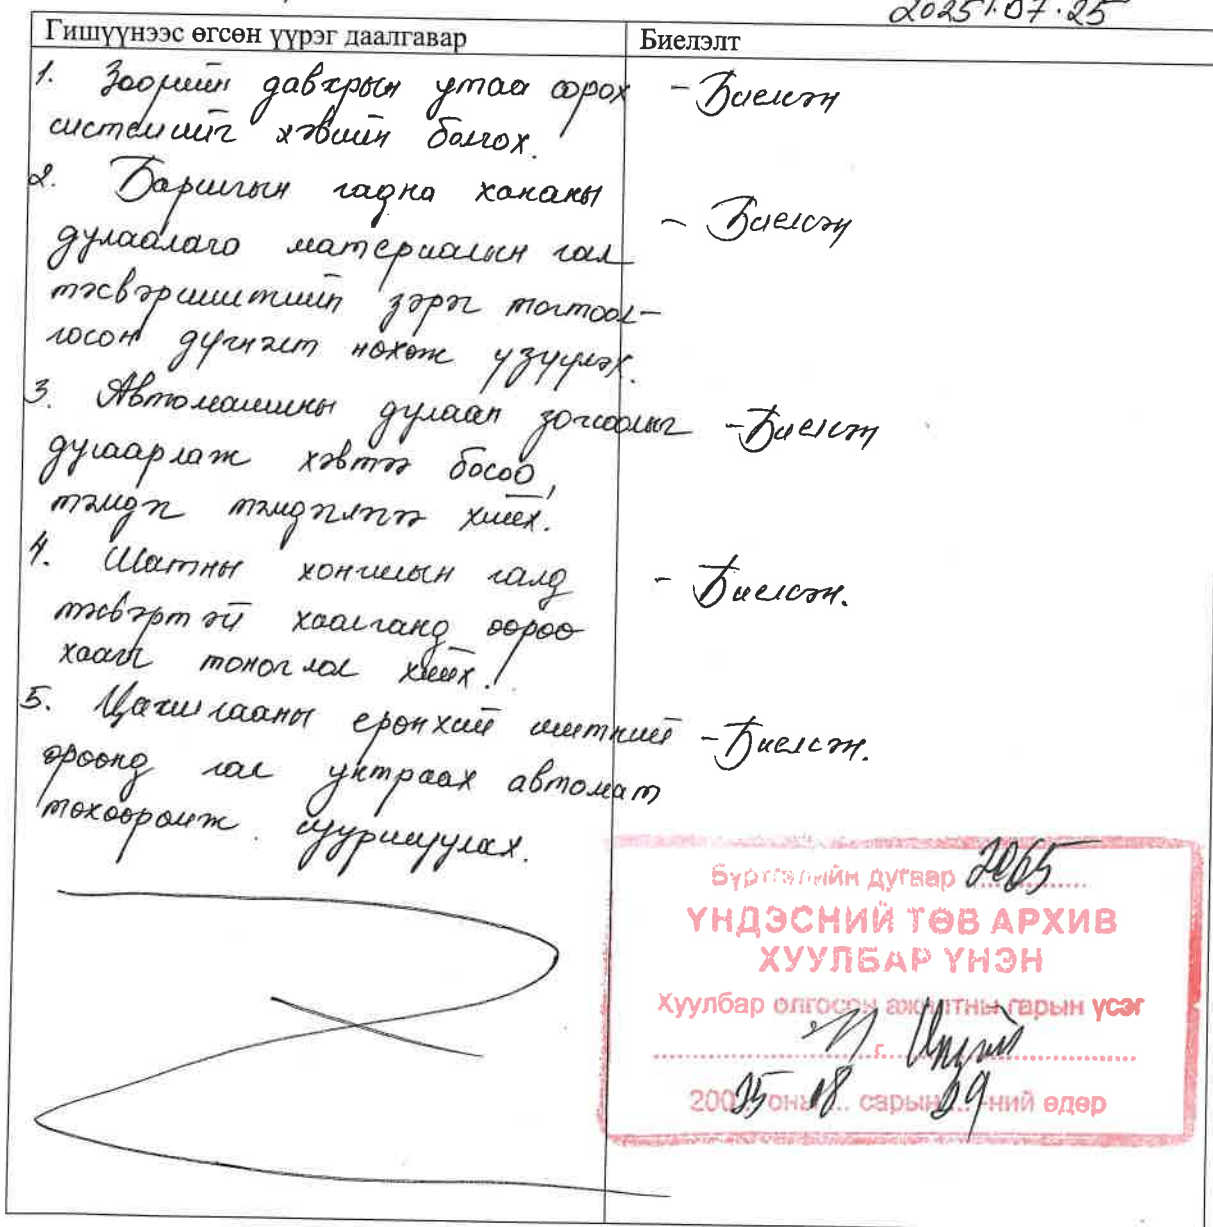 2025.07.25
Гишүүнээс өгсөн үүрэг даалгавар
Биелэлт
1. Зоорийн давхрын утаа сорох - Биелсэн
системийг хэвийн болгох.
2. Барилгын гадна хананы
- Биелсэн
дулаалага материалын гал
тэсвэршилтийн зэрэг тогтоол-
госон дүгнэлт нөхөж үзүүлэх.
3. Автомашины дулаан зогсоолыг - Биелсэн
дугаарлаж хэвтээ босоо,
тэмдэг тэмдэглэгээ хийх.
4. Шатны хонгилын галд - Биелсэн.
тэсвэртэй хаалганд өөрөө
хаагч тоноглол хийх.
5. Цахилгааны ерөнхий щитний - Биелсэн.
өрөөнд гал унтраах автомат
төхөөрөмж суурилуулах.
Бүртгэлийн дугаар 2065
ҮНДЭСНИЙ ТӨВ АРХИВ
ХУУЛБАР ҮНЭН
Хуулбар олгосон ажилтны гарын үсэг
г.
200 25 оны 08 сарын 29 -ний өдөр